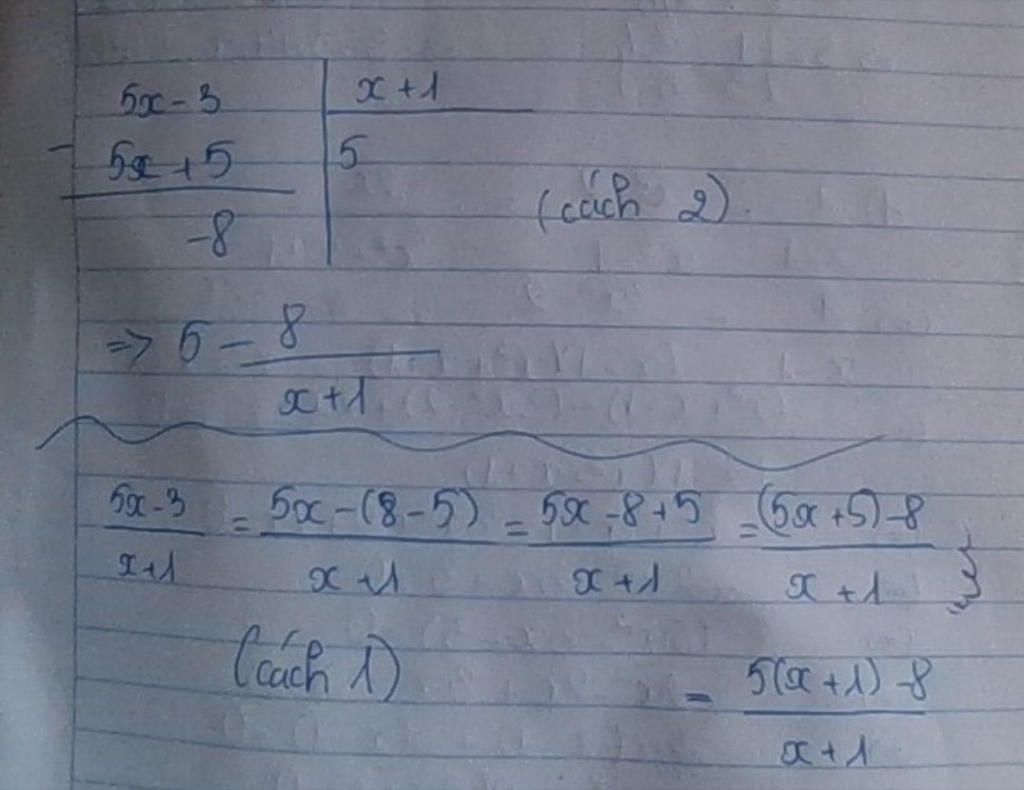 5x - 3 | x + 1
- 5x + 5 | 5
(cách 2).
-8
=> 5 - 8/(x + 1)
(5x - 3)/(x + 1) = (5x - (8 - 5))/(x + 1) = (5x - 8 + 5)/(x + 1) = ((5x + 5) - 8)/(x + 1)
(cách 1)
= (5(x + 1) - 8)/(x + 1)